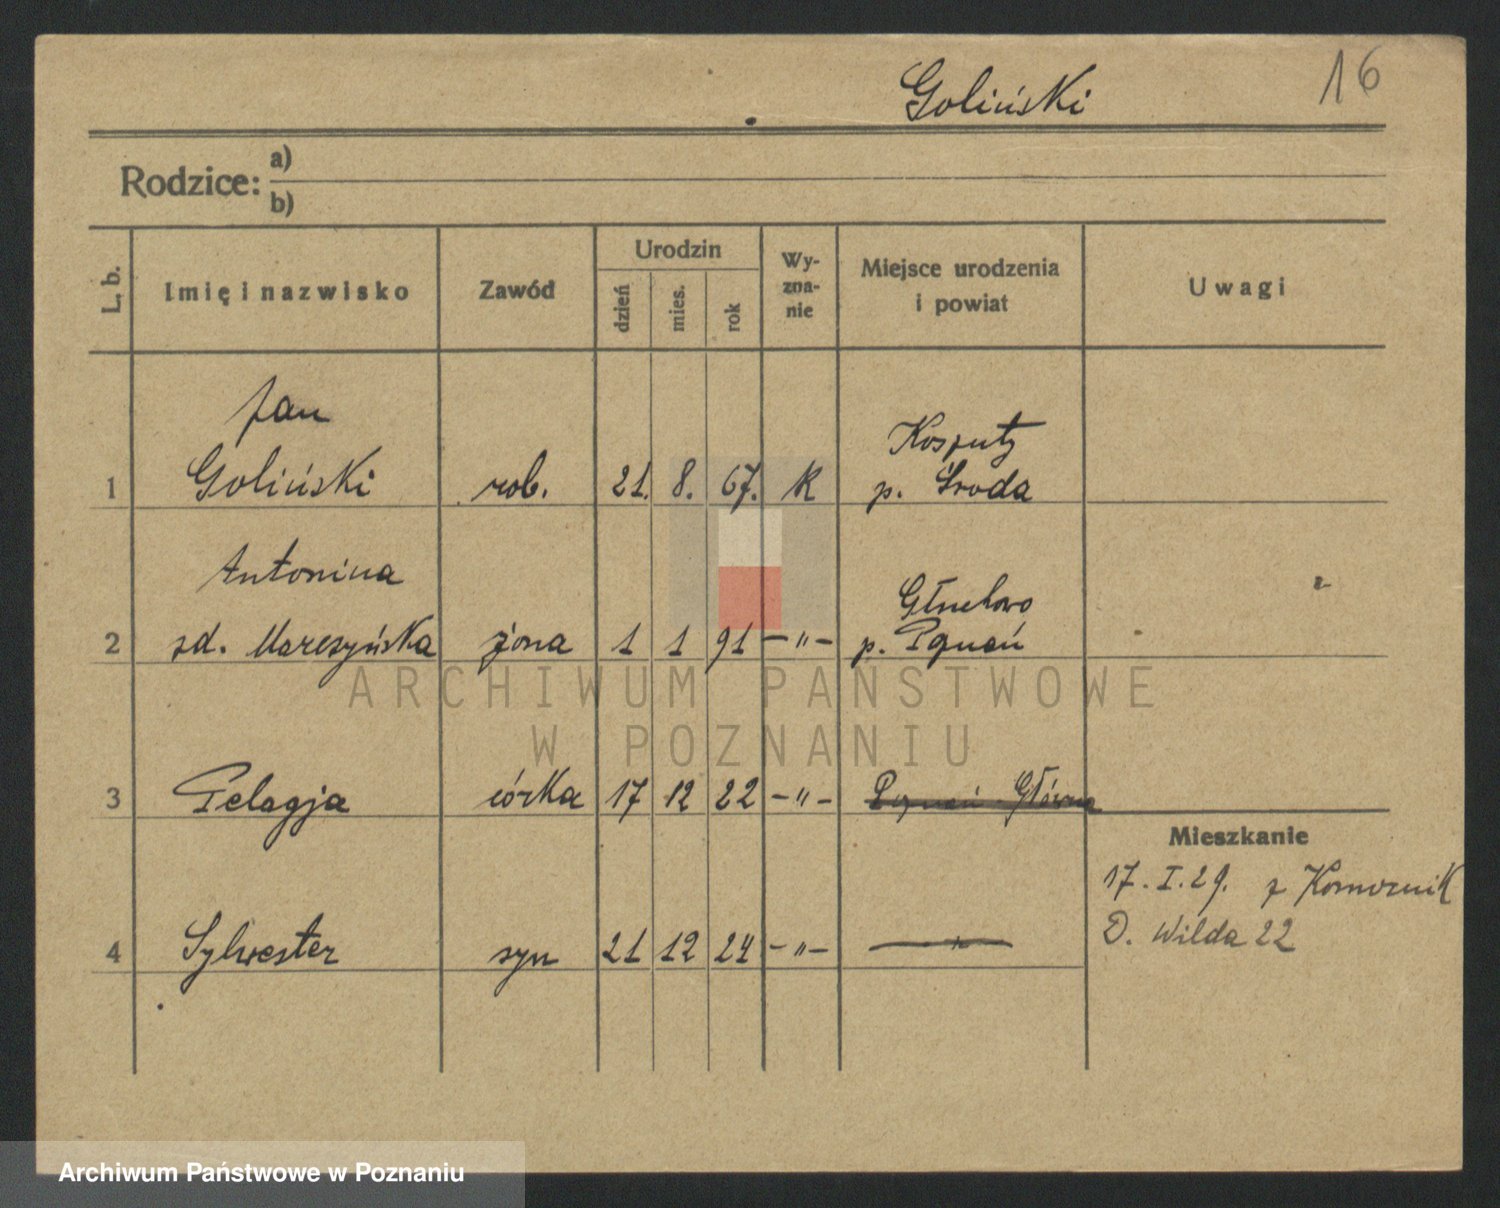 Goliński
16
Rodzice: a)
b)
L. b.
Imię i nazwisko
Zawód
Urodzin
dzień
mies.
rok
Wy-
zna-
nie
Miejsce urodzenia
i powiat
Uwagi
Jan
Goliński
1
rob.
21. 8. 67. K
Kosputy
p. Środa
Antonina
2 zd. żona 1 1 91 —"—
Głuchowo
p. Poznań
3 Pelagja córka 17 12 22 —"— Poznań-Główna
4 Sylwester syn 21 12 24 —"— —"—
Mieszkanie
17. I. 29. z Komornik
D. Wilda 22
ARCHIWUM PAŃSTWOWE
W POZNANIU
Archiwum Państwowe w Poznaniu